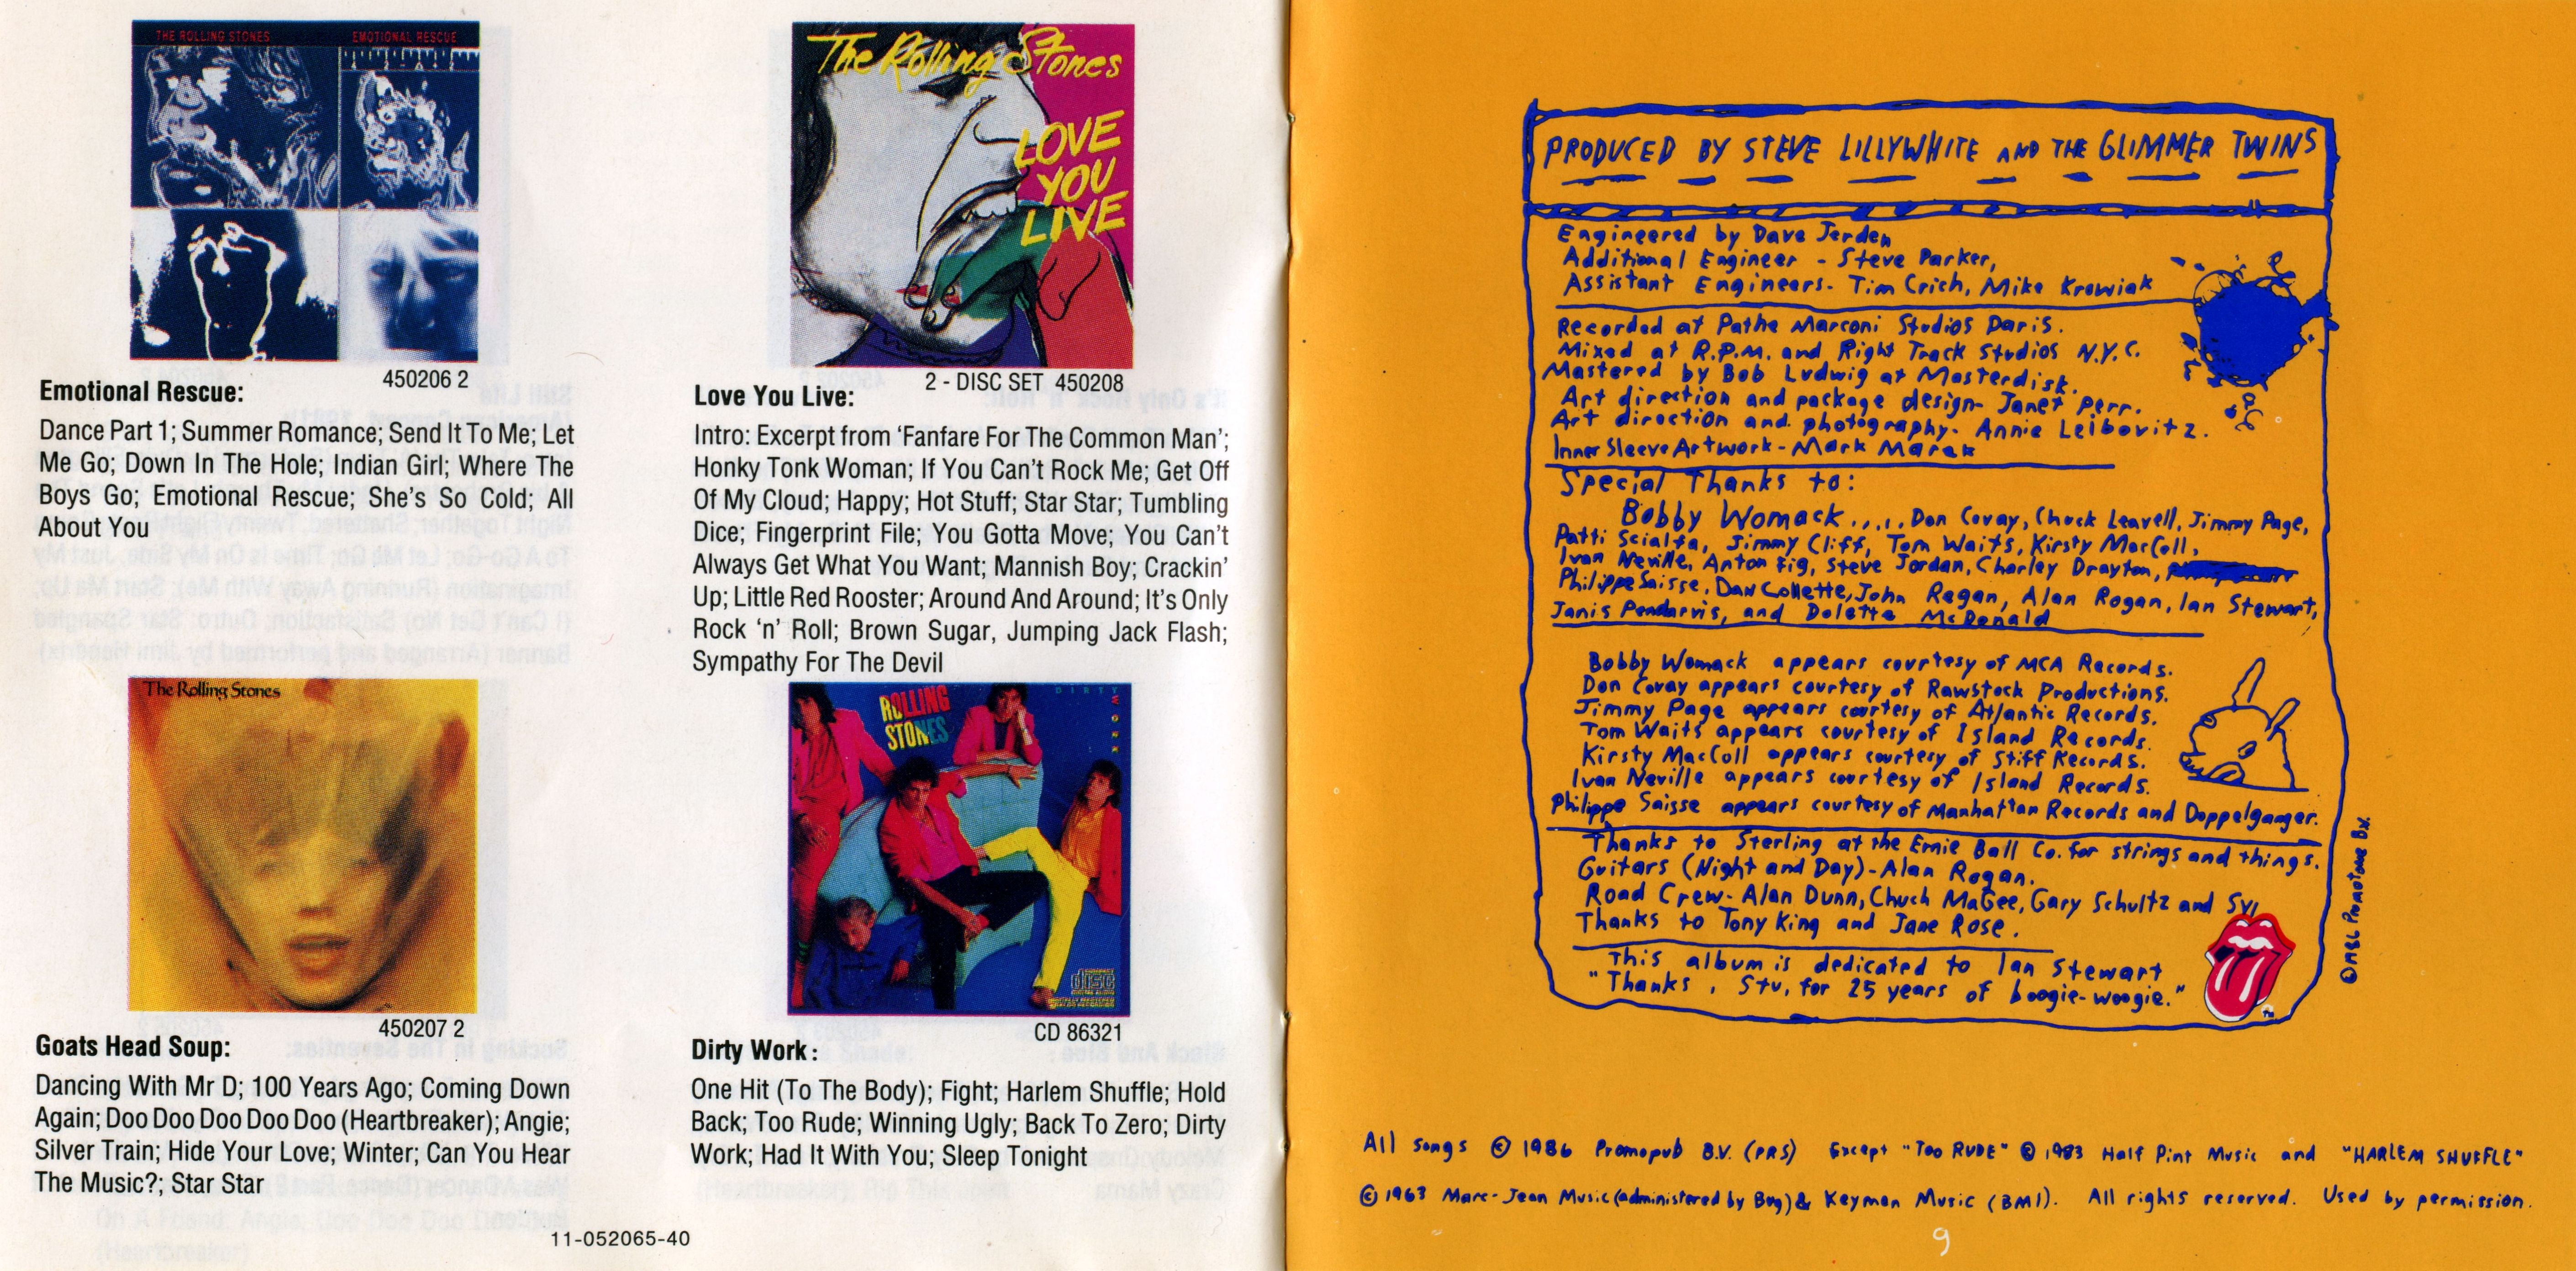 THE ROLLING STONES EMOTIONAL RESCUE
450206 2
Emotional Rescue:
Dance Part 1; Summer Romance; Send It To Me; Let
Me Go; Down In The Hole; Indian Girl; Where The
Boys Go; Emotional Rescue; She's So Cold; All
About You
The Rolling Stones
450207 2
Goats Head Soup:
Dancing With Mr D; 100 Years Ago; Coming Down
Again; Doo Doo Doo Doo Doo (Heartbreaker); Angie;
Silver Train; Hide Your Love; Winter; Can You Hear
The Music?; Star Star
The Rolling Stones
LOVE
YOU
LIVE
2 - DISC SET 450208
Love You Live:
Intro: Excerpt from ‘Fanfare For The Common Man’;
Honky Tonk Woman; If You Can't Rock Me; Get Off
Of My Cloud; Happy; Hot Stuff; Star Star; Tumbling
Dice; Fingerprint File; You Gotta Move; You Can't
Always Get What You Want; Mannish Boy; Crackin'
Up; Little Red Rooster; Around And Around; It's Only
Rock ‘n’ Roll; Brown Sugar, Jumping Jack Flash;
Sympathy For The Devil
ROLLING
STONES
DIRTY WORK
COMPACT
disc
DIGITAL AUDIO
CD 86321
Dirty Work:
One Hit (To The Body); Fight; Harlem Shuffle; Hold
Back; Too Rude; Winning Ugly; Back To Zero; Dirty
Work; Had It With You; Sleep Tonight
11-052065-40
PRODUCED BY STEVE LILLYWHITE AND THE GLIMMER TWINS
Engineered by Dave Jerden
Additional Engineer - Steve Parker,
Assistant Engineers- Tim Crich, Mike Krowiak
Recorded at Pathe Marconi Studios Paris.
Mixed at R.P.M. and Right Track Studios N.Y.C.
Mastered by Bob Ludwig at Masterdisk.
Art direction and package design- Janet Perr.
Art direction and photography- Annie Leibovitz.
Inner Sleeve Artwork - Mark Marek
Special Thanks to:
Bobby Womack...., Don Covay, Chuck Leavell, Jimmy Page,
Patti Scialfa, Jimmy Cliff, Tom Waits, Kirsty MacColl,
Ivan Neville, Anton Fig, Steve Jordan, Charley Drayton,
Philippe Saisse, Dan Collette, John Regan, Alan Rogan, Ian Stewart,
Janis Pendarvis, and Dolette McDonald
Bobby Womack appears courtesy of MCA Records.
Don Covay appears courtesy of Rawstock Productions.
Jimmy Page appears courtesy of Atlantic Records.
Tom Waits appears courtesy of Island Records.
Kirsty MacColl appears courtesy of Stiff Records.
Ivan Neville appears courtesy of Island Records.
Philippe Saisse appears courtesy of Manhattan Records and Doppelganger.
Thanks to Sterling at the Ernie Ball Co. for strings and things.
Guitars (Night and Day)-Alan Rogan.
Road Crew- Alan Dunn, Chuch MaGee, Gary Schultz and Svi
Thanks to Tony King and Jane Rose.
This album is dedicated to Ian Stewart
"Thanks, Stu, for 25 years of boogie-woogie."
TM
All songs © 1986 Promopub B.V. (PRS) Except "TOO RUDE" © 1983 Half Pint Music and "HARLEM SHUFFLE"
© 1963 Marc-Jean Music (administered by Bug) & Keyman Music (BMI). All rights reserved. Used by permission.
9